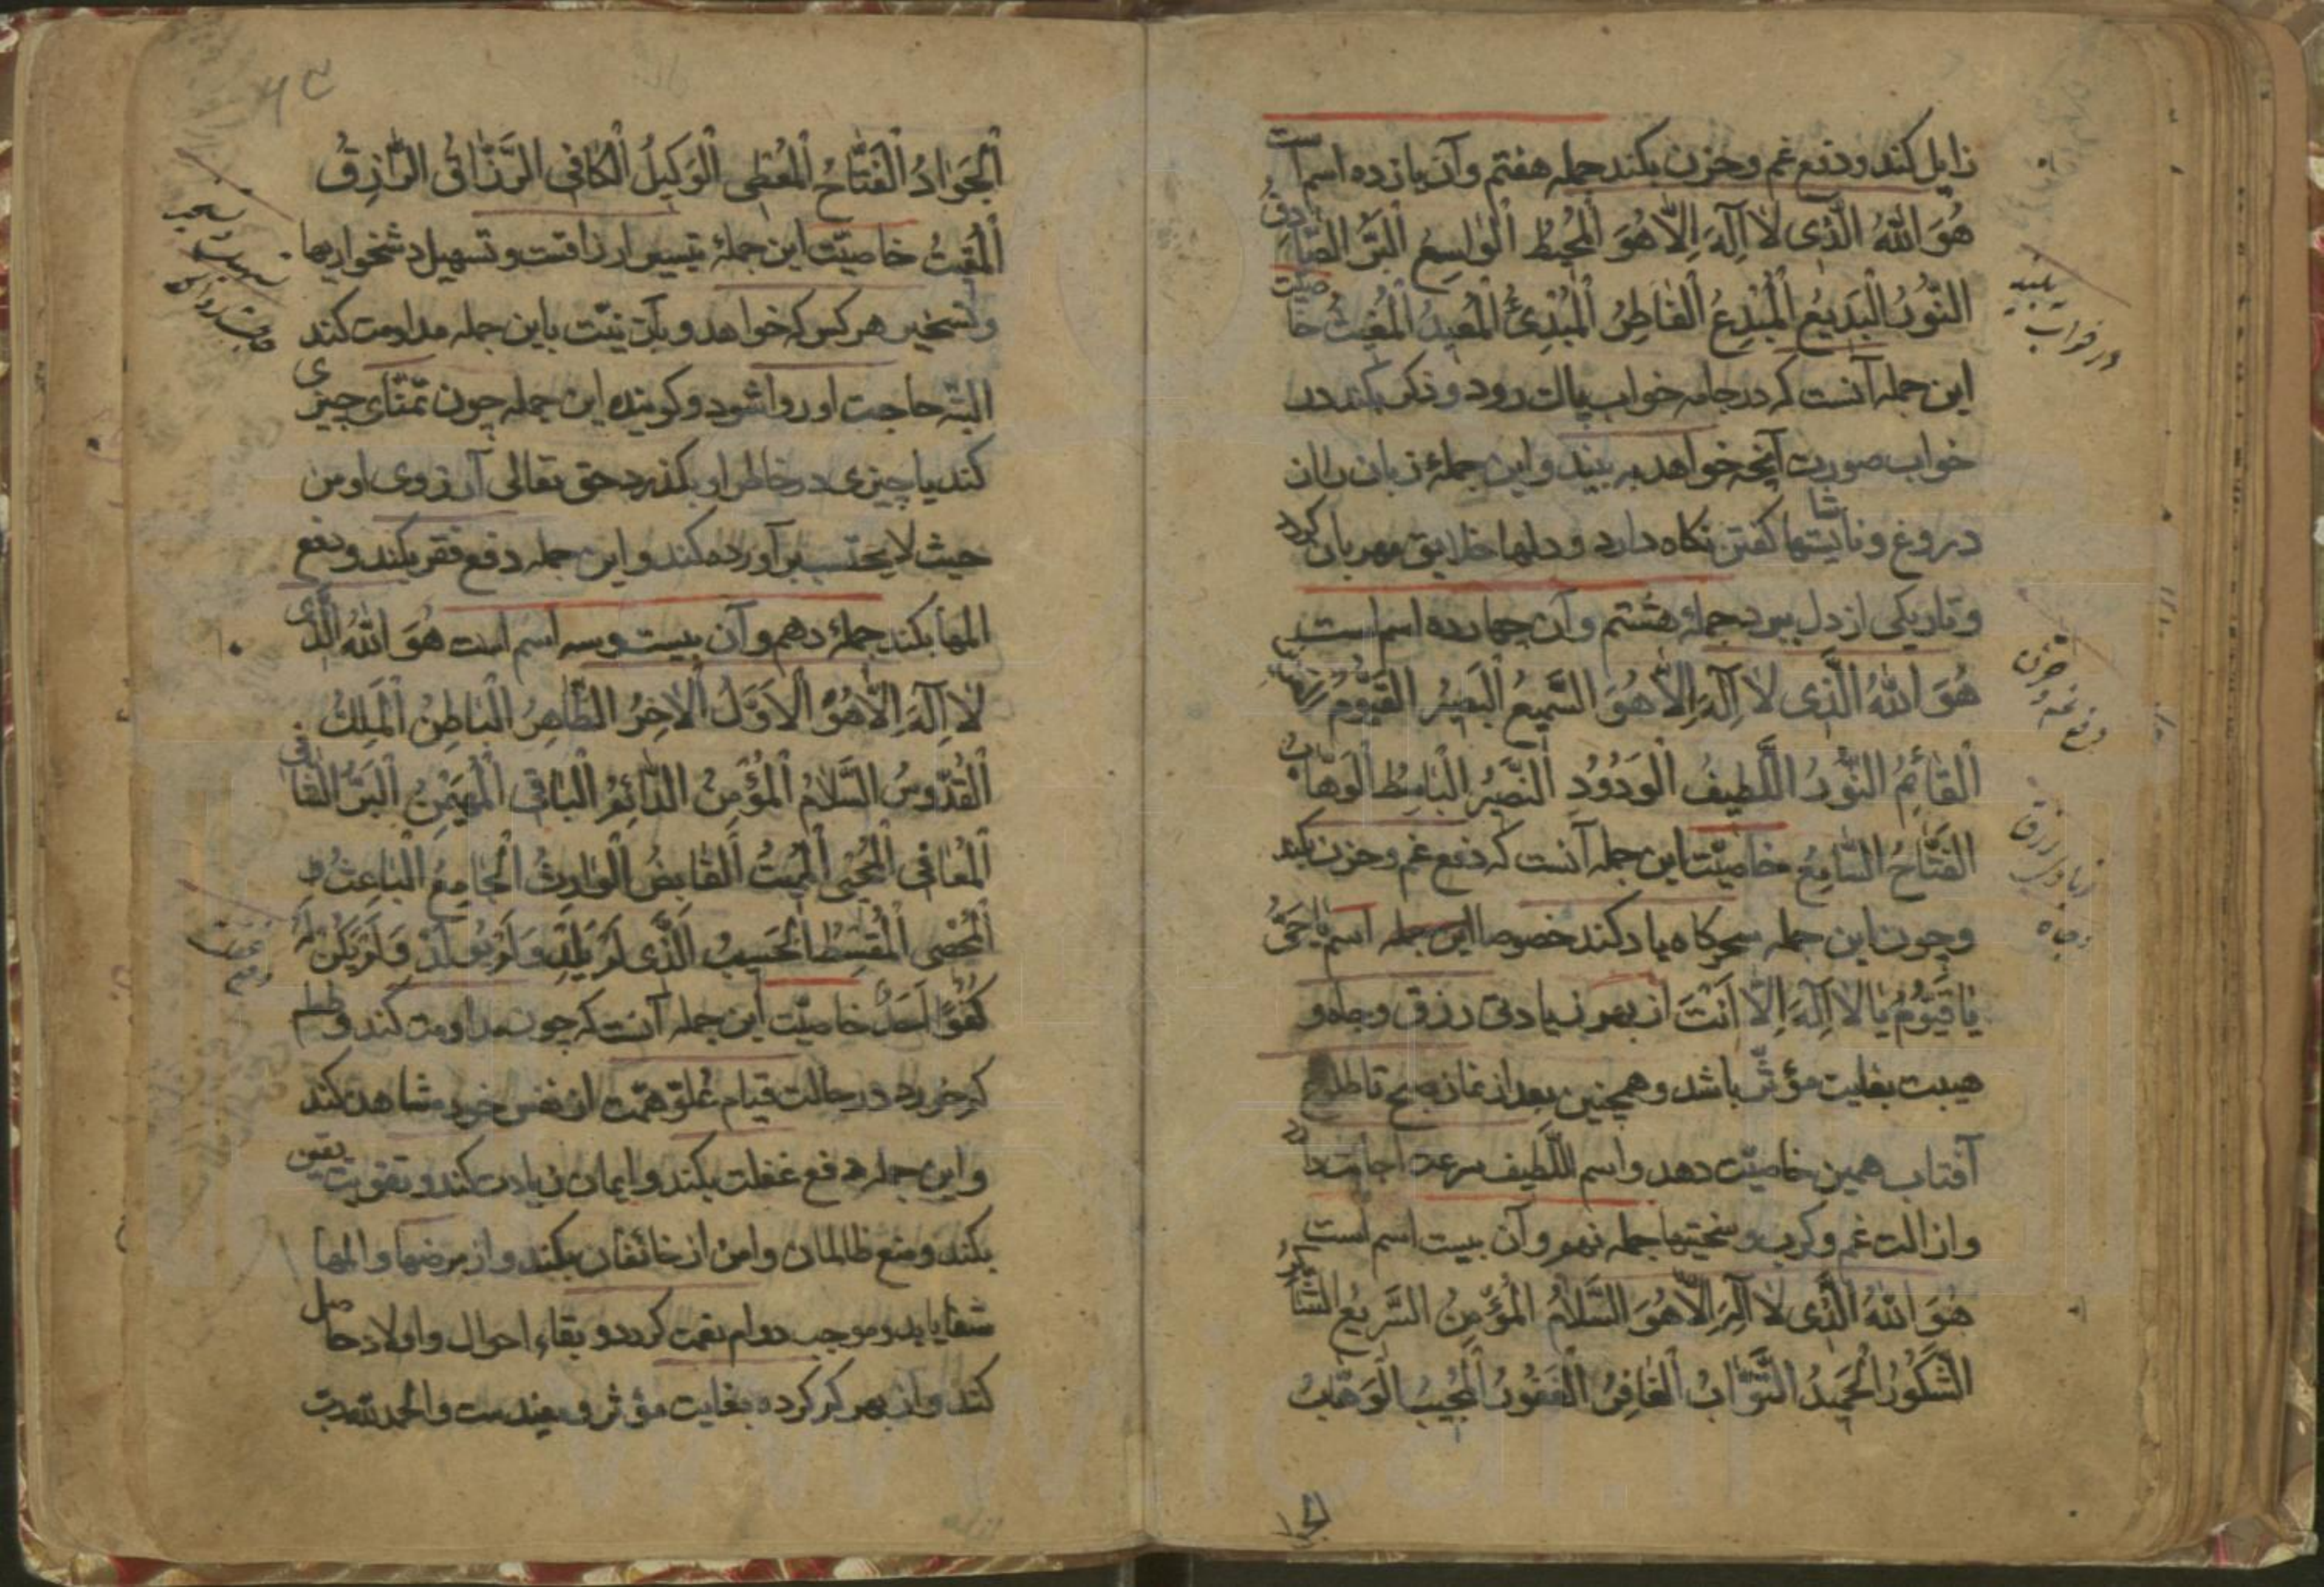 زایل کند و دفع غم و حزن بکند جمله هفتم و آن یازده اسم است
هُوَ اللهُ الَّذی لا اِلٰهَ اِلّا هُوَ الْمُحیطُ الْواسِعُ الْبَرُّ الصّادِقُ
النُّورُ الْبَدیعُ الْمُبْدِعُ الْفاطِرُ الْمُبْدِئُ الْمُعیدُ الْمُغیثُ خاصیّت
این جمله آنست که در جامه خواب پاک رود و ذکر بکند در
خواب صورت آنچه خواهد به بیند و این جملهٔ زبان را از
دروغ و ناشایستها کفتن نکاه دارد و دلهاء خلایق مهربان کردد
و تاریکی از دل ببرد جملهٔ هشتم و آن چهارده اسم است
هُوَ اللهُ الَّذی لا اِلٰهَ اِلّا هُوَ السَّمیعُ الْبَصیرُ الْقَیُّومُ
الْقائِمُ النُّورُ اللَّطیفُ الْوَدُودُ النَّصیرُ الْباسِطُ الْوَهّابُ
الْفَتّاحُ السّامِعُ خاصیّت این جمله آنست که دفع غم و حزن بکند
و چون این جمله سحرکاه یاد کند خصوصا این جمله اسم یا حَیُّ
یا قَیُّومُ یا لا اِلٰهَ اِلّا اَنْتَ از بهر زیادتی رزق و جاه و
هیبت بغایت مؤثّر باشد و همچنین بعد از نماز صبح تا طلوع
آفتاب همین خاصیّت دهد و اسم اللَّطیف سرعت اجابت دارد
و ازالت غم و کرب و سختیها جمله نهم و آن بیست اسم است
هُوَ اللهُ الَّذی لا اِلٰهَ اِلّا هُوَ السَّلامُ الْمُؤْمِنُ السَّریعُ الشّاکِرُ
الشَّکُورُ الْحَمیدُ التَّوّابُ الْغافِرُ الْغَفُورُ الْمُجیبُ الْوَهّابُ
الجوا
در خواب
دفع غم و حزن
زیادتی رزق
و جاه
الْجَوادُ الْفَتّاحُ الْمُعْطِی الْوَکیلُ الْکافِی الرَّزّاقُ الرّازِقُ
الْمُقیتُ خاصیّت این جملهٔ تیسیر ارزاقست و تسهیل دشخواریها
و تسخیر هر کس که خواهد و بآن نیّت باین جمله مداومت کند
البتّه حاجت او روا شود و کوینده این جمله چون تمنّای چیزی
کند یا چیزی در خاطر او بکذرد حق تعالی آرزوی او من
حیث لا یحتسب برآورده کند و این جمله دفع فقر بکند و دفع
المها بکند جملهٔ دهم و آن بیست و سه اسم است هُوَ اللهُ الَّذی
لا اِلٰهَ اِلّا هُوَ الْاَوَّلُ الْآخِرُ الظّاهِرُ الْباطِنُ الْمَلِکُ
الْقُدُّوسُ السَّلامُ الْمُؤْمِنُ الدّائِمُ الْباقِی الْمُهَیْمِنُ الْبَرُّ
الْمُعافِی الْمُحْیِی الْمُمیتُ الْقابِضُ الْوارِثُ الْجامِعُ الْباعِثُ
الْمُحْصِی الْمُقْسِطُ الْحَسیبُ الَّذی لَمْ یَلِدْ وَلَمْ یُولَدْ وَلَمْ یَکُنْ لَهُ
کُفُوًا اَحَدٌ خاصیّت این جمله آنست که چون مداومت کند و
در حالت قیام علوّ همّت از نفس خود مشاهده کند
و این جمله دفع غفلت بکند و ایمان زیادت کند و تقویت یقین
بکند و منع ظالمان و امن از خائفان بکند و از مرضها و المها
شفا یابد و موجب دوام نعمت کردد و بقاء احوال و اولاد حاصل
کند و از بهر کرده بغایت مؤثر و مفیدست والحمد لله رب
دفع غفلت